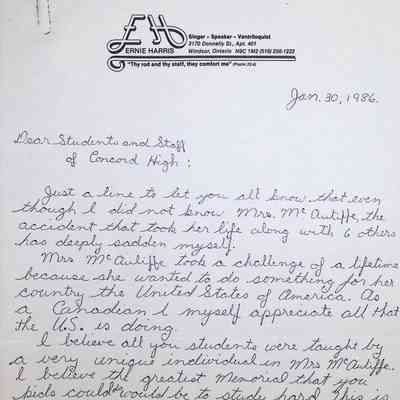 EH
ERNIE HARRIS
Singer - Speaker - Ventriloquist
3170 Donnelly St., Apt. 401
Windsor, Ontario N9C 1M2 (519) 256-1222
"Thy rod and thy staff, they comfort me" (Psalm 23:4)
Jan. 30, 1986.
Dear Students and Staff
of Concord High :
Just a line to let you all know that even
though I did not know Mrs. McAuliffe, the
accident that took her life along with 6 others
has deeply sadden myself.
Mrs McAuliffe took a challenge of a lifetime
because she wanted to do something for her
country the United States of America. As
a Canadian I myself appreciate all that
the U.S. is doing.
I believe all you students were taught by
a very unique individual in Mrs McAuliffe.
I believe the greatest Memorial that you
could would be to study hard. This is